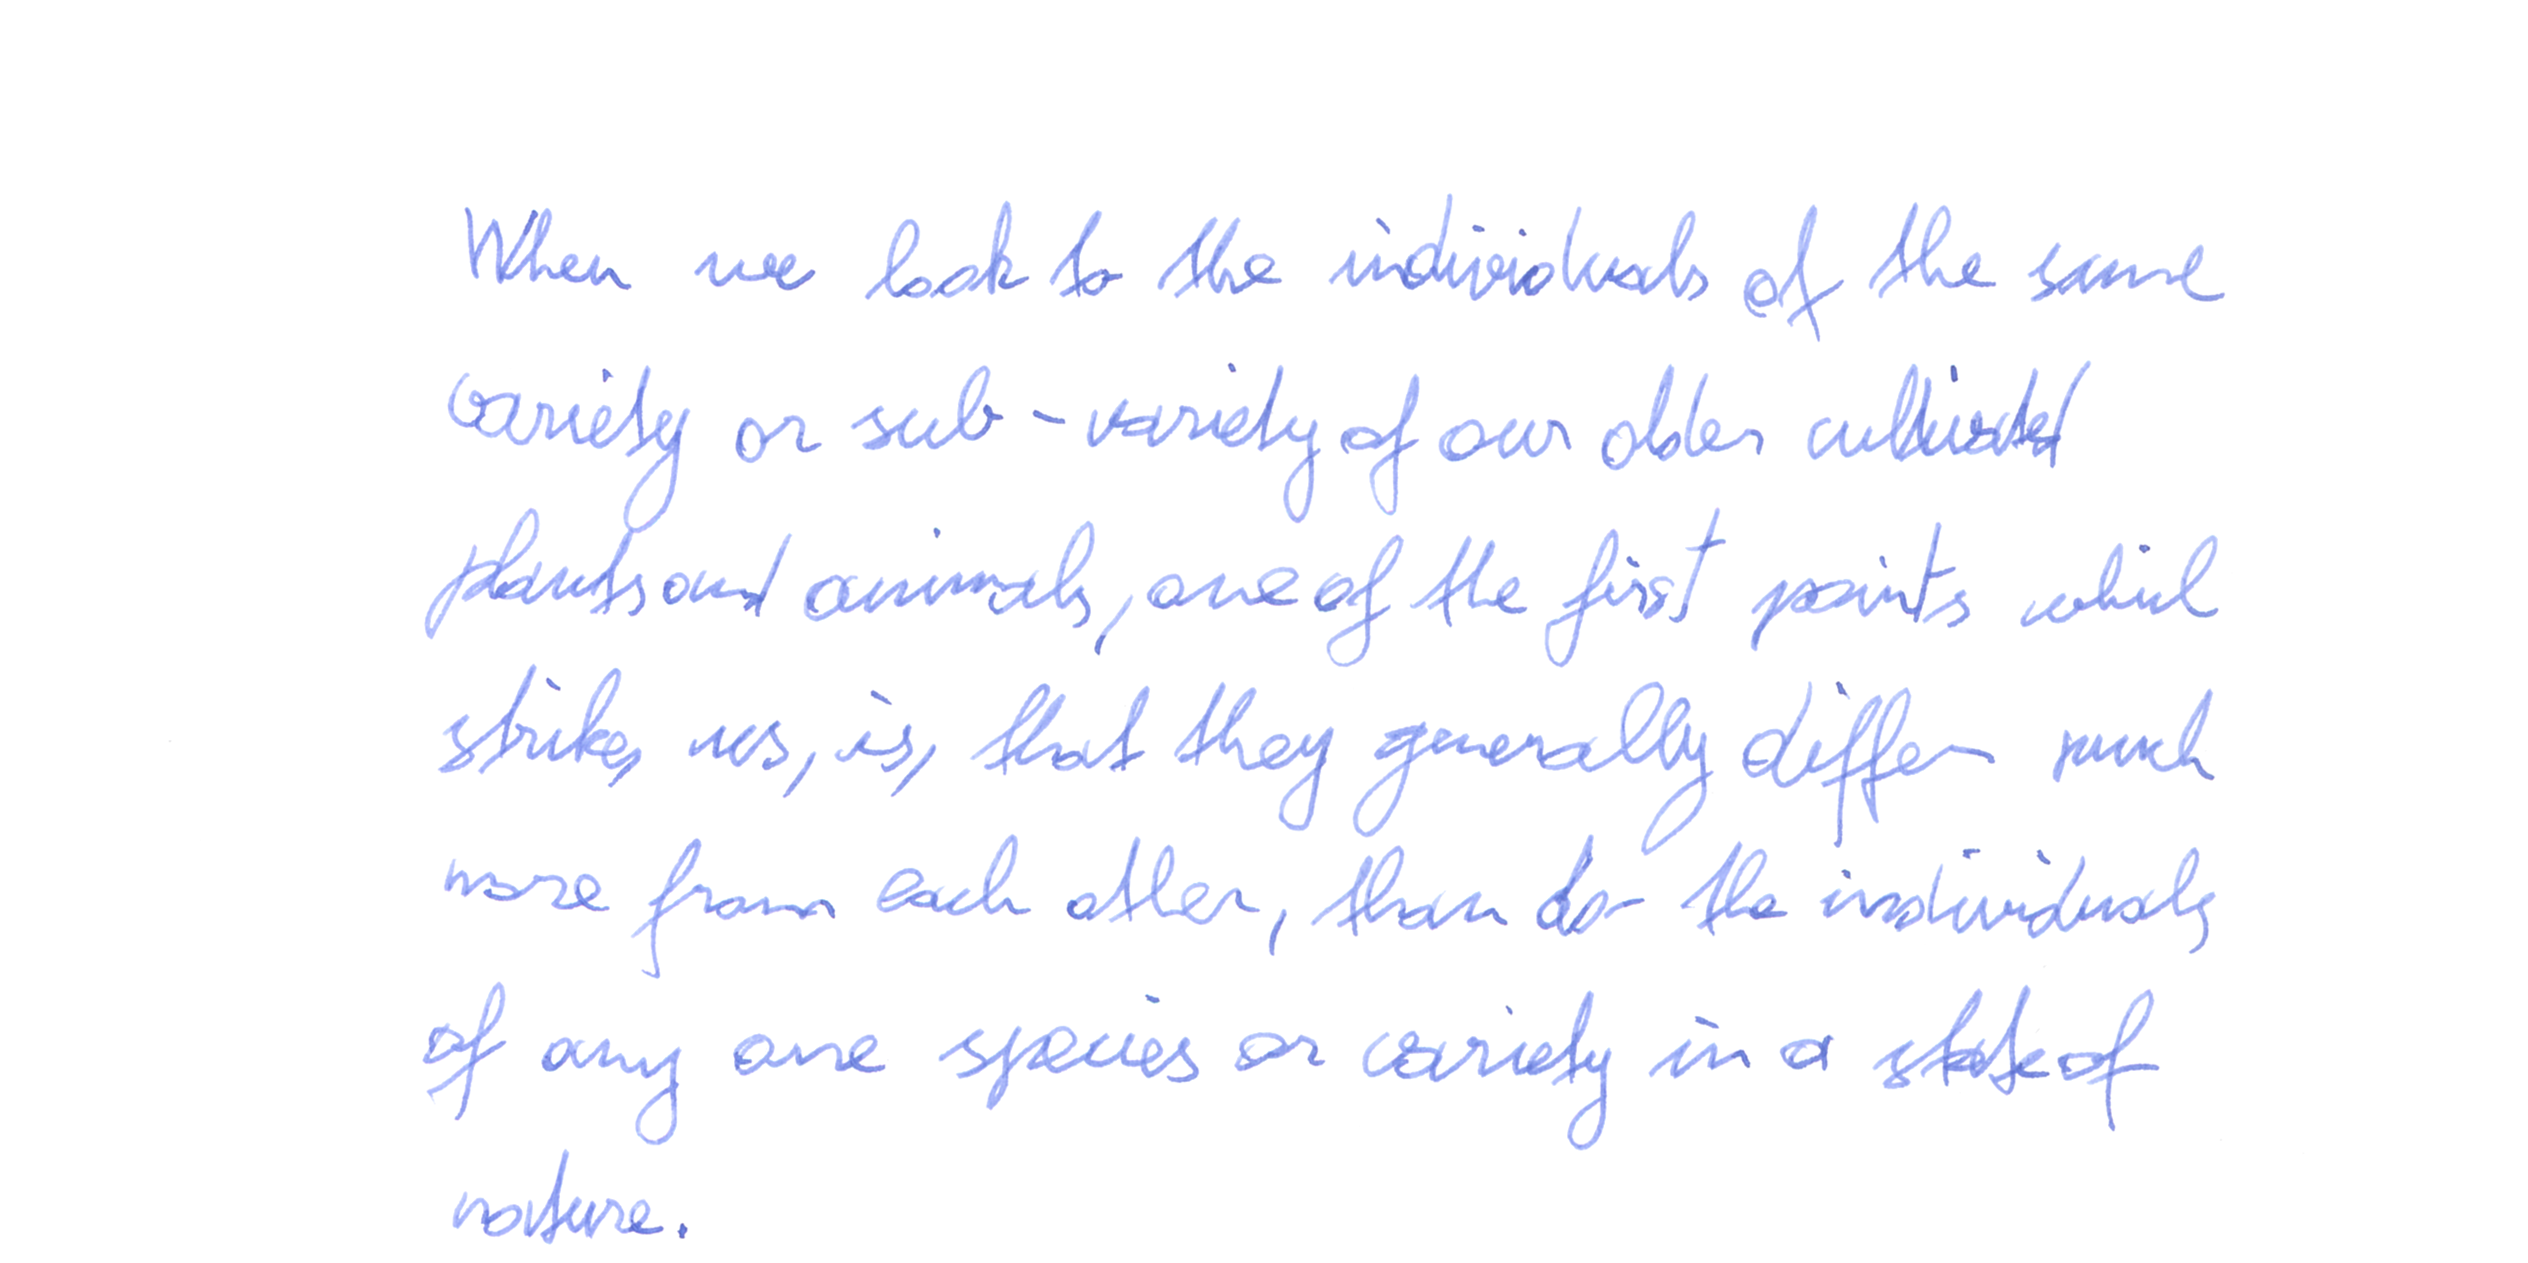 When we look to the individuals of the same
variety or sub-variety of our older cultivated
plants and animals, one of the first points which
strikes us, is, that they generally differ much
more from each other, than do the individuals
of any one species or variety in a state of
nature.